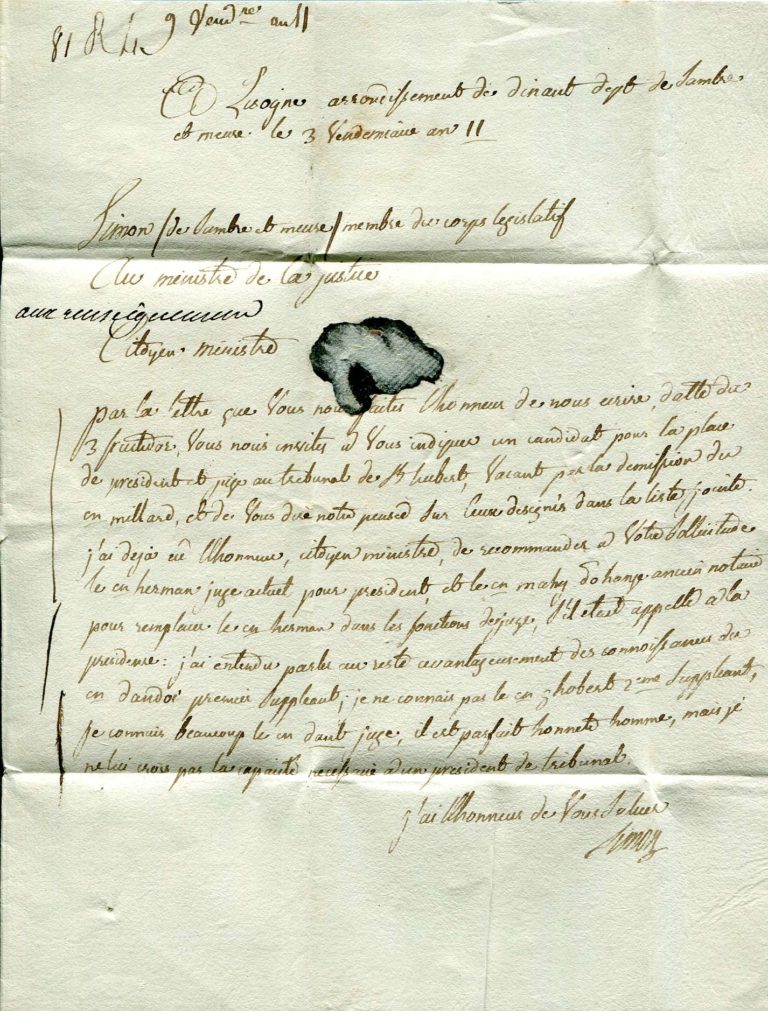 9 Vend.re an 11
A Lisogne arrondissement de dinant dept de Sambre
et meuse le 3 Vendemiaire an 11
Simon /de Sambre et meuse/ membre du corps legislatif
Au ministre de la justice
aux renseignemens
Citoyen ministre
par la lettre que Vous nous faites l'honneur de nous ecrire, datte du
3 fructidor, Vous nous invites a Vous indiquer un candidat pour la place
de president et juge au tribunal de St hubert, Vacant par la demission du
cn millard, et de Vous dire notre pensée sur Ceux designés dans la liste jointe.
j'ai dejà eû l'honneur, citoyen ministre, de recommander a Votre Sollicitude
le cn herman juge actuel pour president, et le cn mahy ancien notaire
pour remplacer le cn herman dans les fonctions de juge, S'il etait appellé a la
presidence: j'ai entendu parler au reste avantageusement des connoissances du
cn dandoi premier Suppleant; je ne connais pas le cn 2eme Suppleant,
je connais beaucoup le cn dault juge, il est parfait honnete homme, mais je
ne lui crois pas la capacité necessaire a un president de tribunal.
j'ai l'honneur de Vous Saluer
Simon